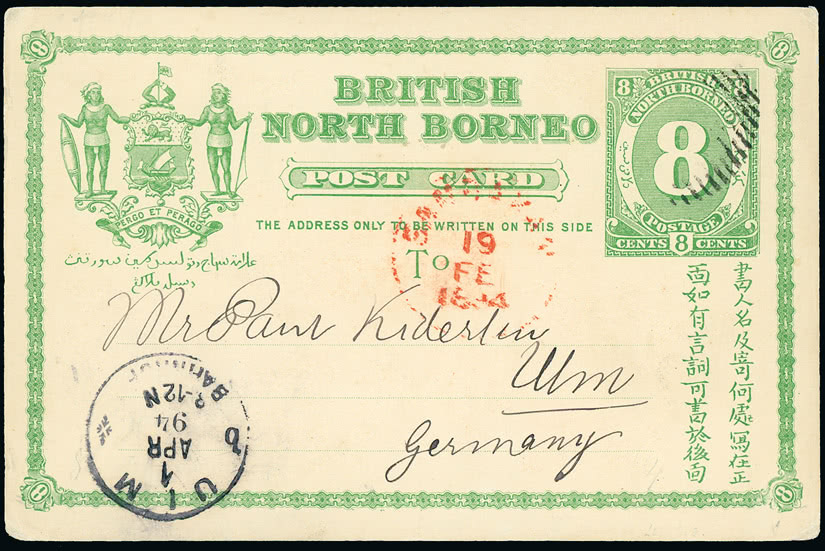 BRITISH
NORTH BORNEO
POST CARD
THE ADDRESS ONLY TO BE WRITTEN ON THIS SIDE
To
PERGO ET PERAGO
8
8
8
8
BRITISH
NORTH BORNEO
8
8
POSTAGE
CENTS 8 CENTS
19
FE
Mr Paul Kiderlen
Ulm
Germany
書人名及寄何處寫在正
面如有言詞可書於後面
ULM
1
APR
94
8-12N
BAHNHOF